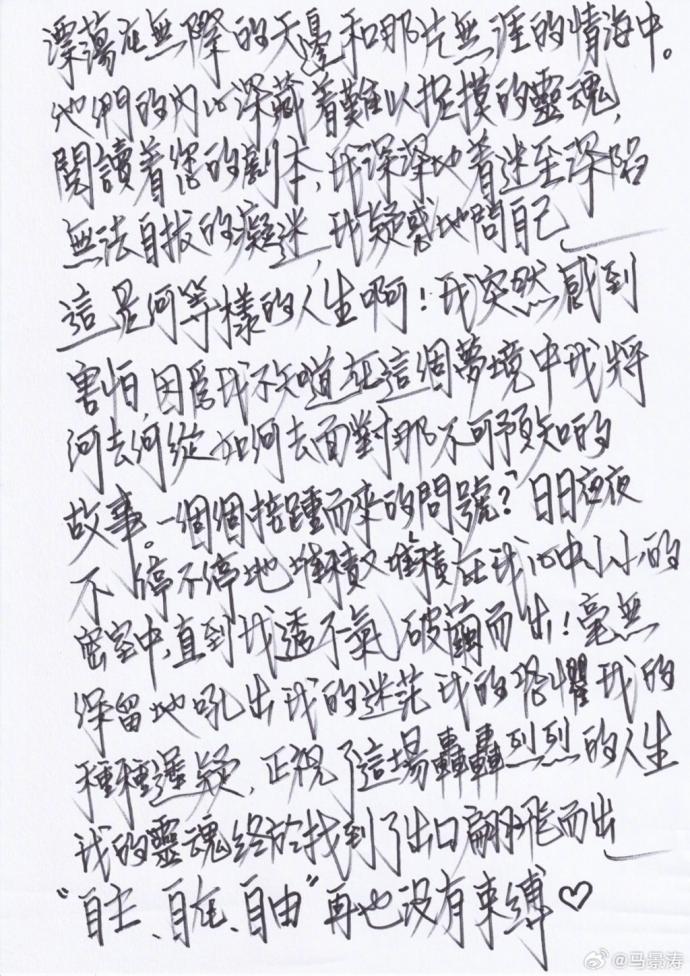 漂蕩在無際的天邊和那片無涯的情海中。
他們的內心深藏着難以捉摸的靈魂,
閱讀着您的劇本,我深深地着迷至深陷
無法自拔的癡迷,我疑惑地問自己
這是何等樣的人生啊!我突然感到
害怕,因爲我不知道在這個夢境中我將
何去何從如何去面對那不可預知的
故事。一個個接踵而來的問號?日日夜夜
不停不停地堆積又堆積在我心中小小的
密室中,直到我透不氣 破繭而出!毫無
保留地吼出我的迷茫我的恐懼我的
種種遲疑,正視了這場轟轟烈烈的人生
我的靈魂終於找到了出口翩翩飛而出
"自主、自在、自由"再也没有束縛♡
@马景涛